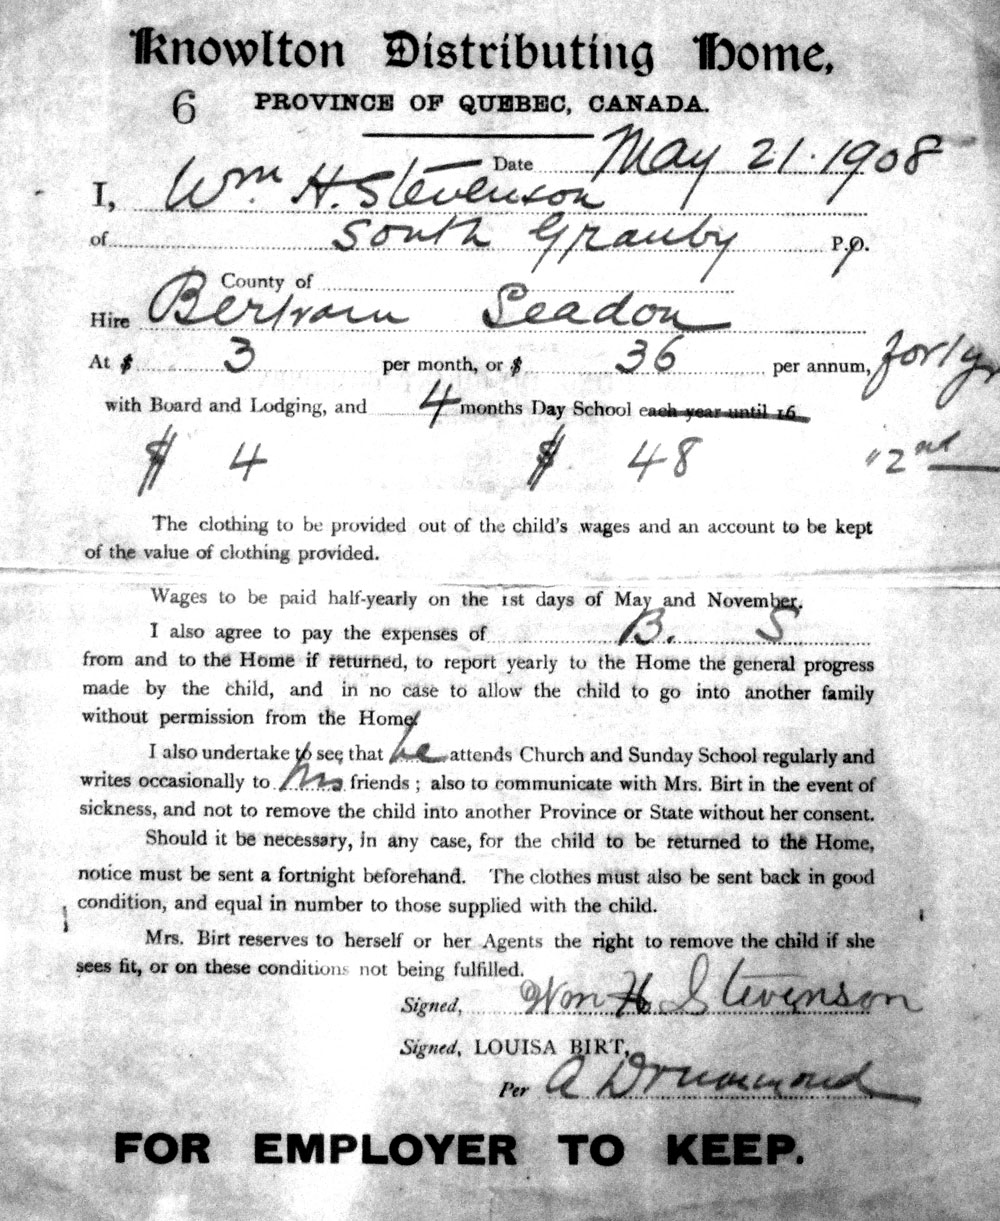 Knowlton Distributing Home,
6 PROVINCE OF QUEBEC, CANADA.
Date May 21. 1908
I, Wm H. Stevenson
of South Granby P.O.
County of
Hire Bertram Seadon
At $ 3 per month, or $ 36 per annum, for 1 yr
with Board and Lodging, and 4 months Day School each year until 16
$ 4 $ 48 "2nd
The clothing to be provided out of the child's wages and an account to be kept
of the value of clothing provided.
Wages to be paid half-yearly on the 1st days of May and November.
I also agree to pay the expenses of B. S
from and to the Home if returned, to report yearly to the Home the general progress
made by the child, and in no case to allow the child to go into another family
without permission from the Home.
I also undertake to see that he attends Church and Sunday School regularly and
writes occasionally to his friends; also to communicate with Mrs. Birt in the event of
sickness, and not to remove the child into another Province or State without her consent.
Should it be necessary, in any case, for the child to be returned to the Home,
notice must be sent a fortnight beforehand. The clothes must also be sent back in good
condition, and equal in number to those supplied with the child.
Mrs. Birt reserves to herself or her Agents the right to remove the child if she
sees fit, or on these conditions not being fulfilled.
Signed, Wm H. Stevenson
Signed, LOUISA BIRT,
Per A Drummond
FOR EMPLOYER TO KEEP.